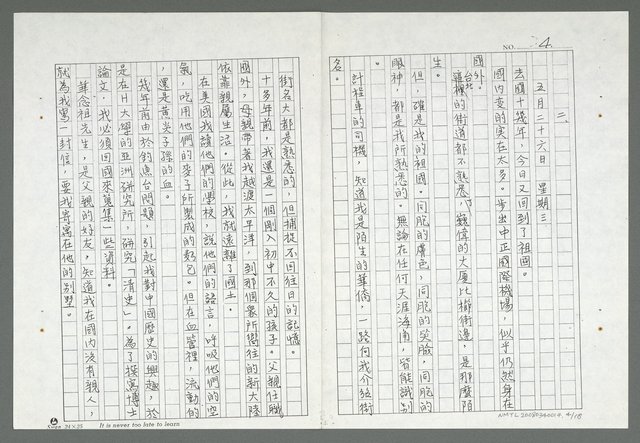 NO. 4
二、
五月二十六日 星期三
去國十幾年，今日又回到了祖國。
國內变的实在太多。步出中正國際機場，似乎仍然身在
國外。
台北
這裡的街道都不熟悉，巍偉的大厦比櫛街邊，是那麼陌
生。
但，確是我的祖國。同胞的膚色，同胞的笑臉，同胞的
眼神，都是我所熟悉的。無論在任何天涯海角，皆能識別
。
計程車的司機，知道我是陌生的華僑，一路向我介紹街
名。
街名大都是熟悉的，但捕捉不回往日的記憶。
十多年前，我還是一個剛入初中不久的孩子。父親任職
國外，母親帶著我越渡太平洋，到那個衆所嚮往的新大陸
依靠親屬生活。從此，我就遠離了國土。
在美國我讀他們的學校，說他們的語言，呼吸他們的空
氣，吃用他們的麥子所製成的麭包。但在血管裡，流動的
，還是黃炎子孫的血。
幾年前由於釣魚台問題，引起我對中國歷史的興趣，於
是在H大學的亞洲研究所，研究「清史」。為了撰寫博士
論文，我必須回國來蒐集一些資料。
華念祖先生，是父親的好友，知道我在國內沒有親人，
就為我寫一封信，要我寄寓在他的別墅。
24×25
It is never too late to learn
NMTL20080340014, 4/18